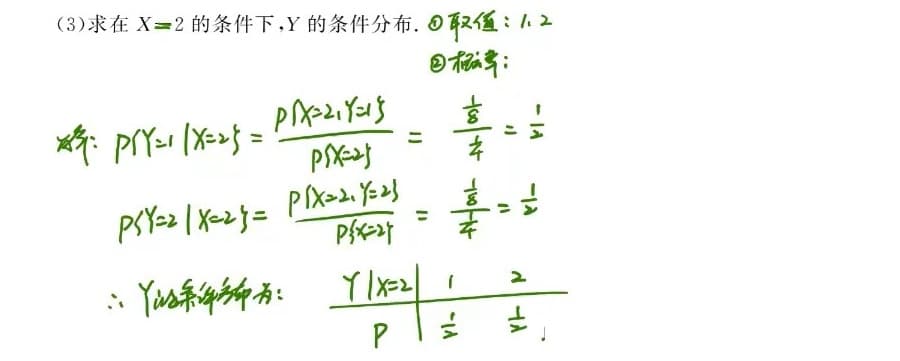 (3)求在 X=2 的条件下,Y 的条件分布. ①取值: 1, 2
②概率:
解: P{Y=1|X=2} = P{X=2,Y=1} / P{X=2} = 1/8 / 1/4 = 1/2
P{Y=2|X=2} = P{X=2,Y=2} / P{X=2} = 1/8 / 1/4 = 1/2
∴ Y的条件分布为: Y|X=2 1 2
P 1/2 1/2 .